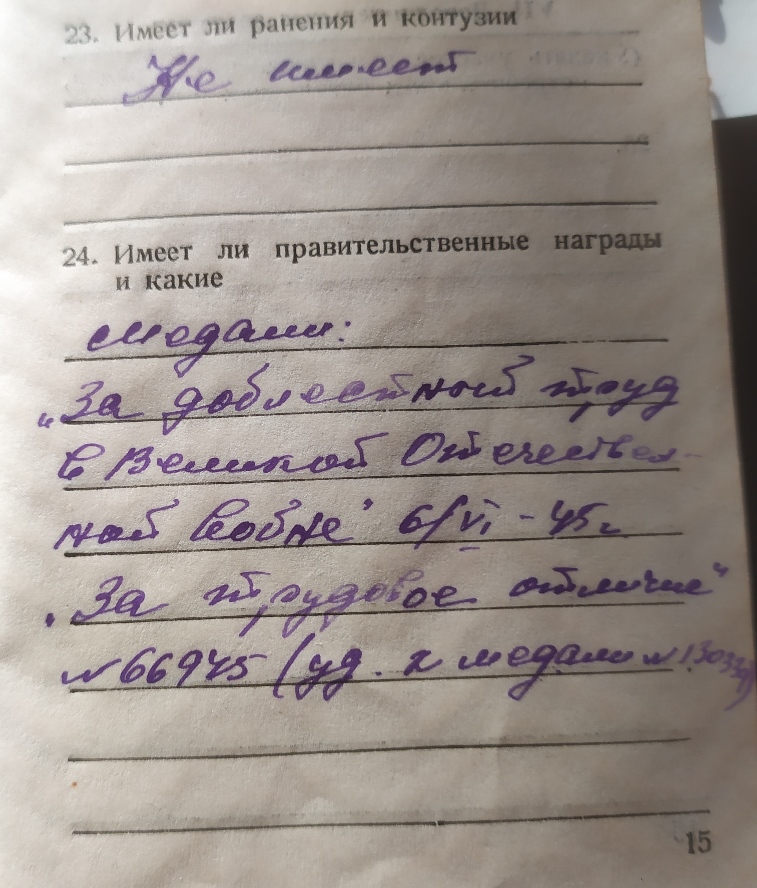 23. Имеет ли ранения и контузии
Не имеет
24. Имеет ли правительственные награды
и какие
Медали:
„За доблестный труд
в Великой Отечествен-
ной войне" 6/VI - 45г.
„За трудовое отличие"
№66945 (уд. к медали №130339)
15